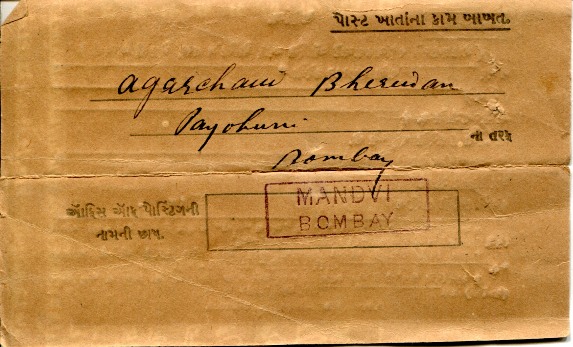 પોસ્ટ ખાતાના કામ બાબત.
Agarchand Bherudan
Payohuni
ના તરફ
Bombay
ઑફિસ ઑફ પોસ્ટિંગની
નામની છાપ.
MANDVI
BOMBAY